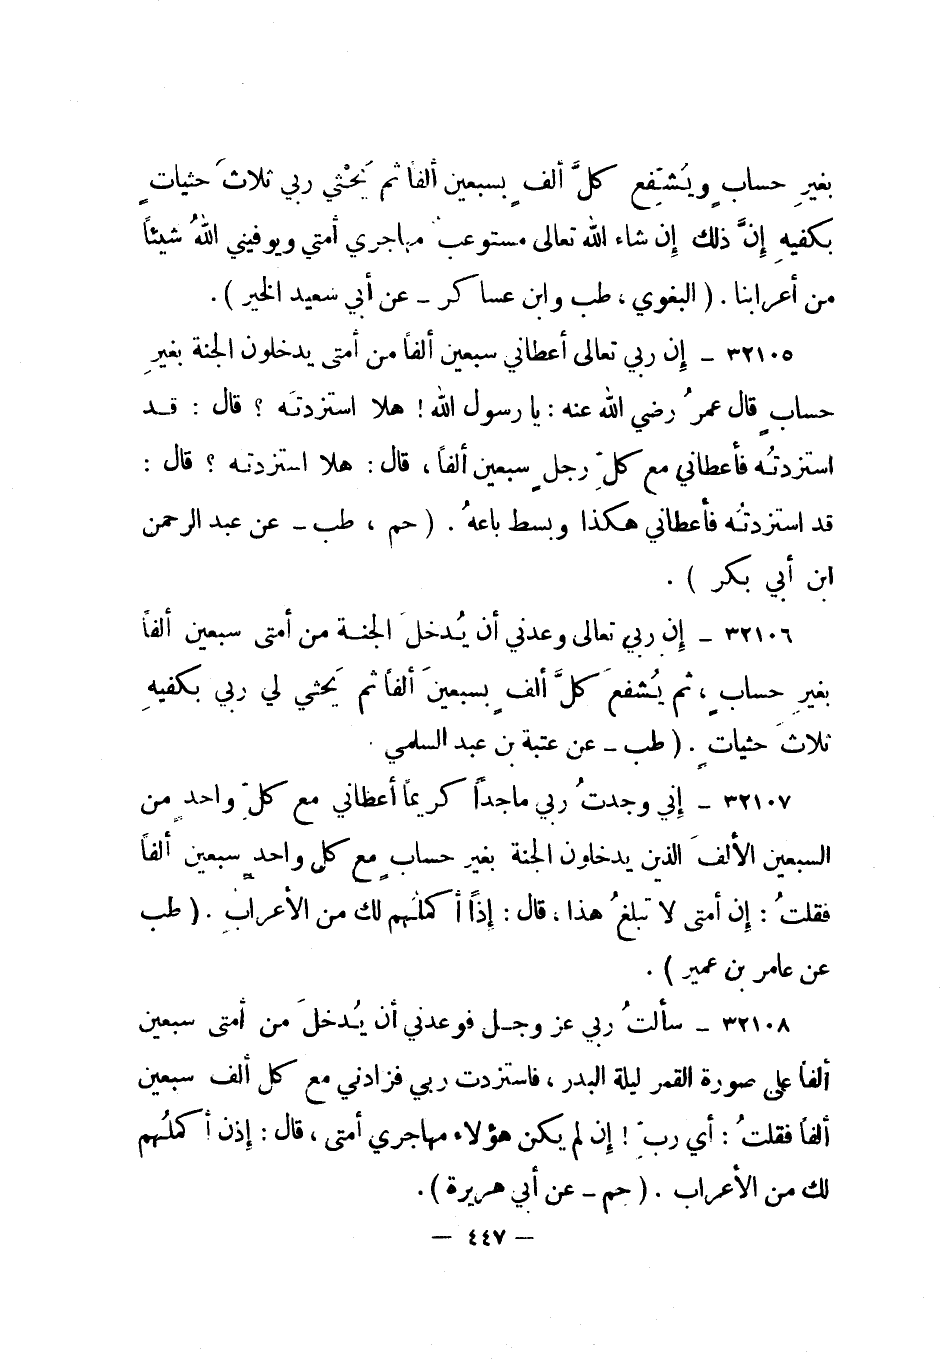 بغيرِ حسابٍ ويُشفِّع كلَّ ألفٍ بسبعين ألفاً ثم يَحْثي ربي ثلاثَ حثياتٍ
بكفيهِ إنَّ ذلك إن شاء الله تعالى مستوعبٌ مهاجري أمتى ويوفيني اللهُ شيئاً
من أعرابنا . ( البغوي ، طب وابن عساكر ـ عن أبي سعيد الخير ) .
٣٢١٠٥ ـ إن ربي تعالى أعطاني سبعين ألفاً من أمتى يدخلون الجنة بغيرِ
حسابٍ قال عمرُ رضي الله عنه : يا رسول الله ! هلا استزدتَه ؟ قال : قد
استزدتُه فأعطاني مع كلِّ رجلٍ سبعين ألفاً ، قال : هلا استزدته ؟ قال :
قد استزدتُه فأعطاني هكذا وبسط باعهُ . ( حم ، طب ـ عن عبد الرحمن
ابن أبي بكر ) .
٣٢١٠٦ ـ إن ربي تعالى وعدني أن يُدخلَ الجنة من أمتى سبعين ألفاً
بغيرِ حسابٍ ، ثم يُشفعَ كلَّ ألفٍ بسبعينَ ألفاً ثم يَحثي لي ربي بكفيهِ
ثلاثَ حثياتٍ . ( طب ـ عن عتبة بن عبد السلمي .
٣٢١٠٧ ـ إني وجدتُ ربي ماجداً كريماً أعطاني مع كلِّ واحدٍ من
السبعين الألفَ الذين يدخلون الجنة بغير حسابٍ مع كل واحدٍ سبعين ألفاً
فقلتُ : إن أمتى لا تبلغُ هذا ، قال : إذاً أكملَهم لك من الأعرابِ . ( طب
عن عامر بن عمير ) .
٣٢١٠٨ ـ سألتُ ربي عز وجل فوعدني أن يُدخلَ من أمتى سبعين
ألفاً على صورة القمر ليلة البدر ، فاستزدت ربي فزادني مع كل ألف سبعين
ألفاً فقلتُ : أي ربِّ ! إن لم يكن هؤلاء مهاجري أمتى ، قال : إذن أكملُهم
لك من الأعراب . ( حم ـ عن أبي هريرة ) .
— ٤٤٧ —